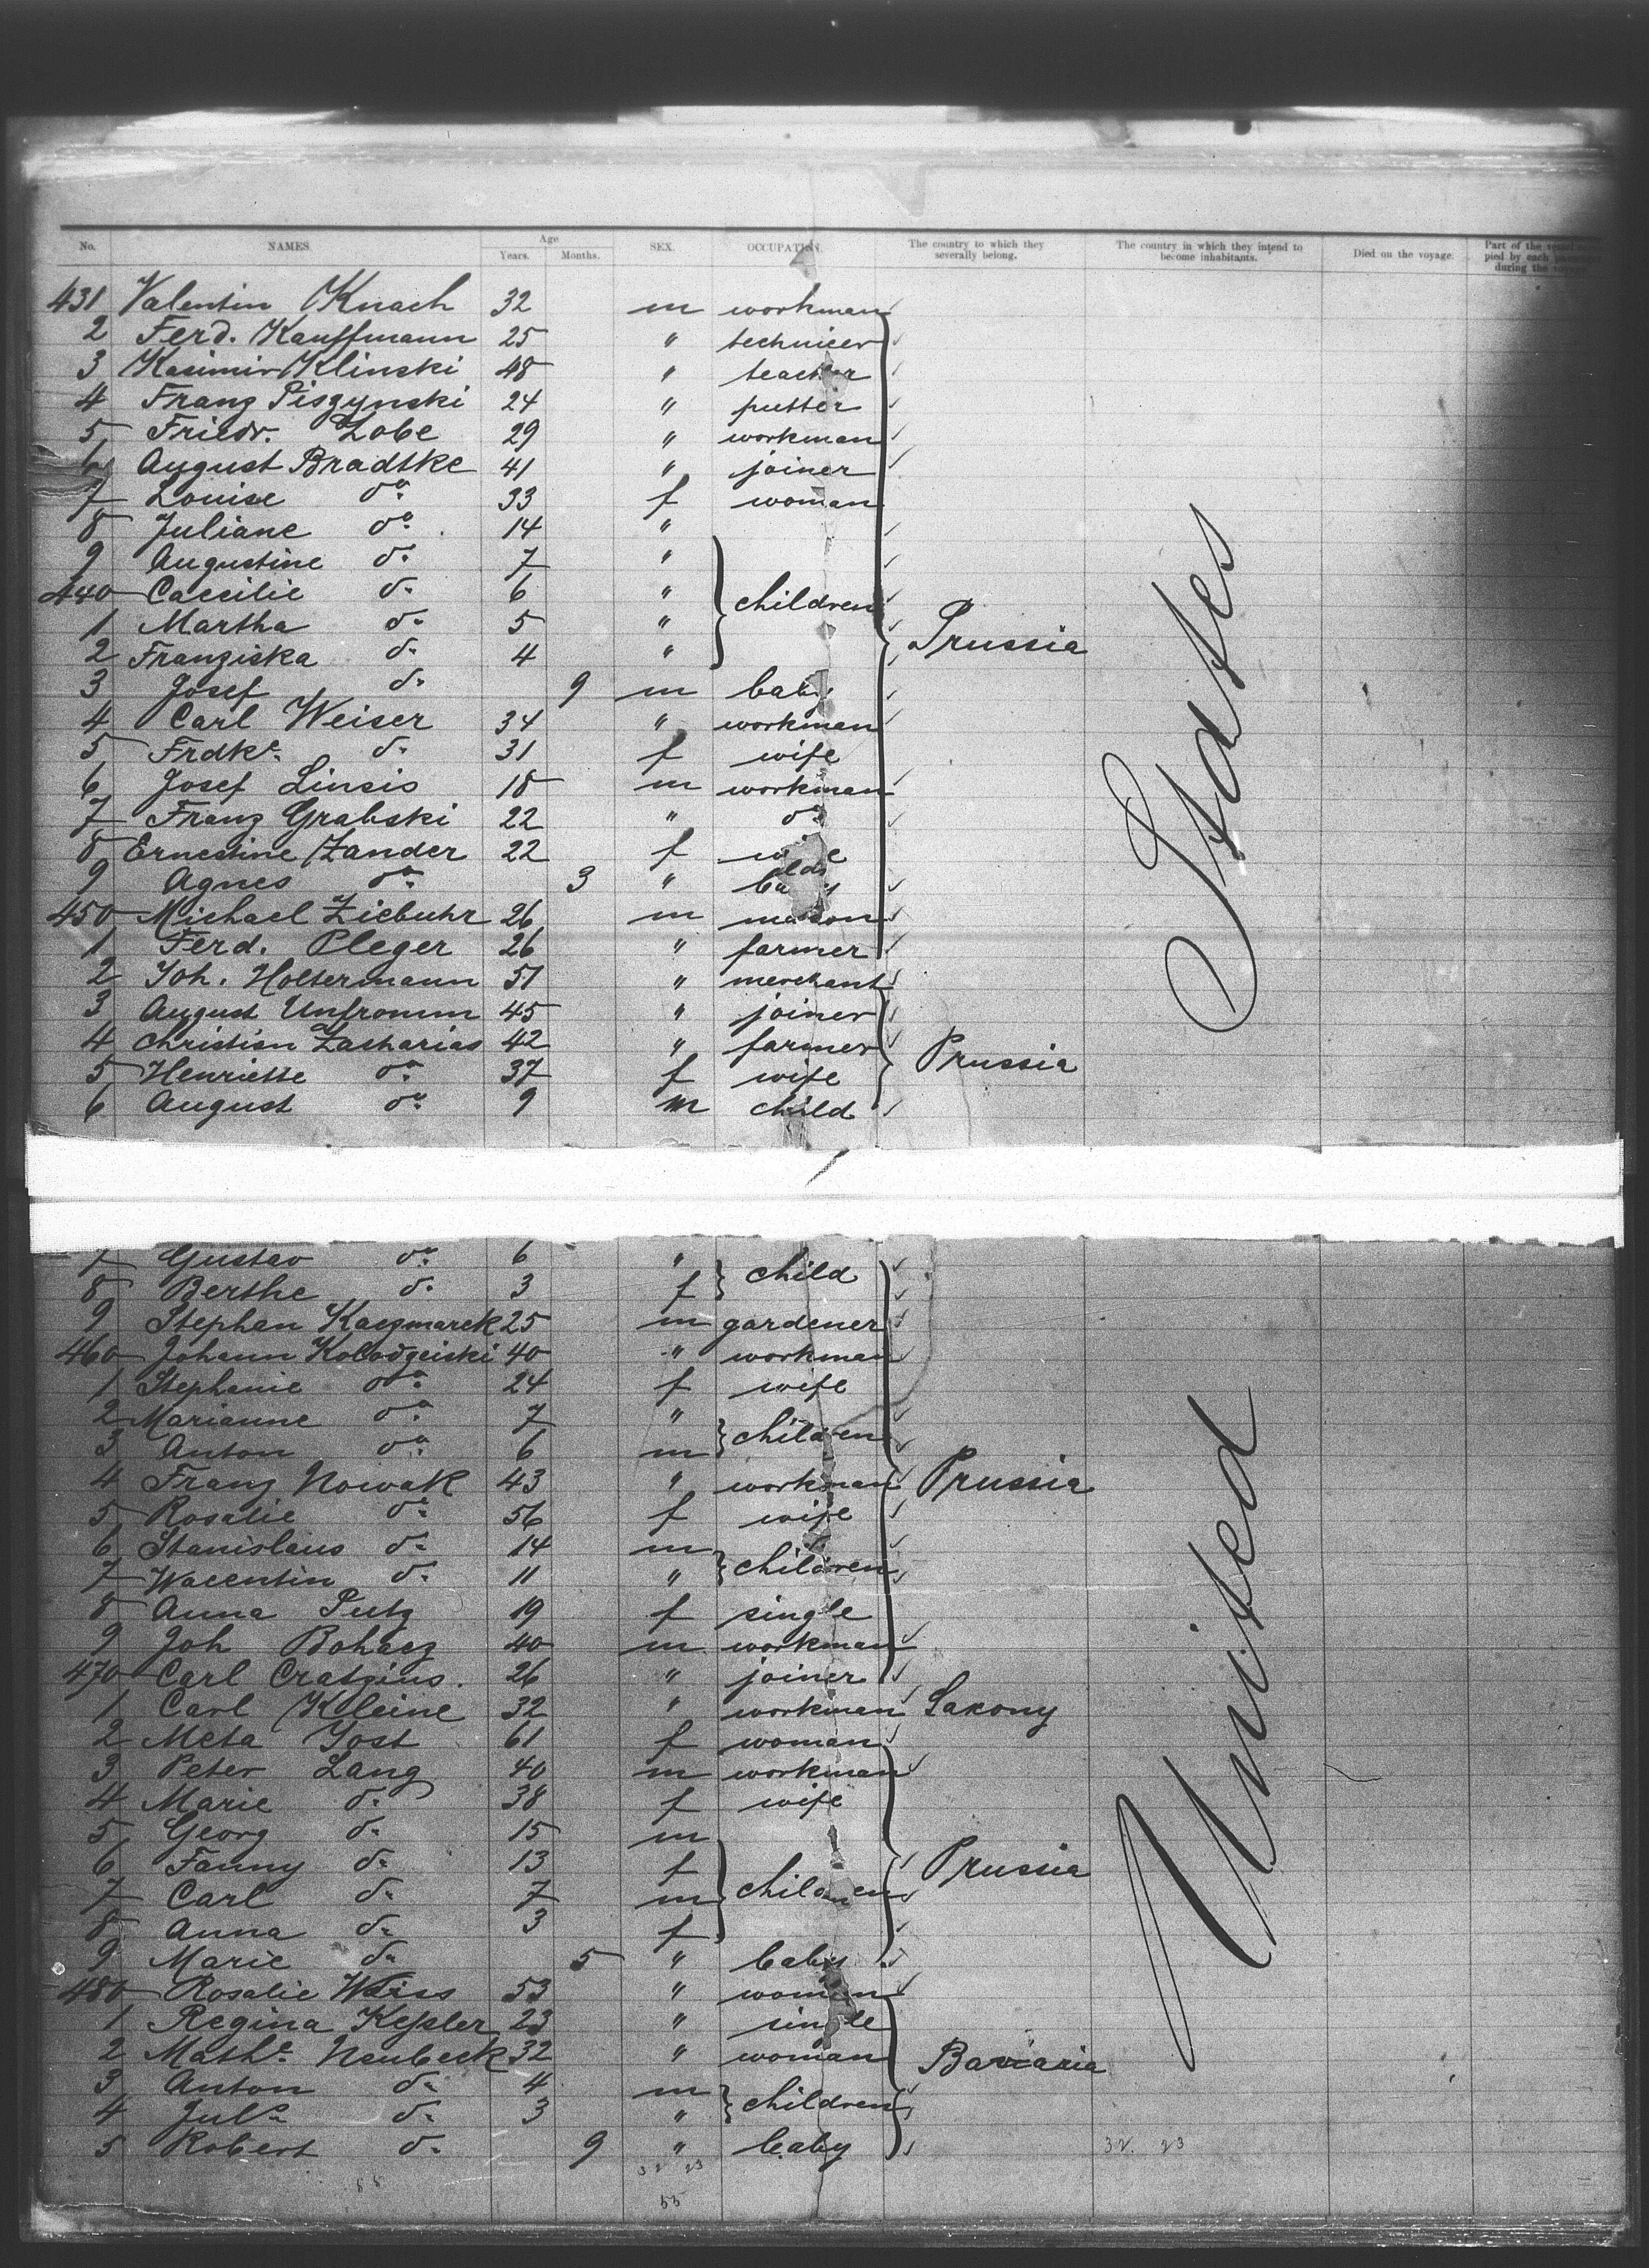 No. NAMES Age Years. Months. SEX. OCCUPATION. The country to which they severally belong. The country in which they intend to become inhabitants. Died on the voyage. Part of the
431 Valentin Knach 32 m workman
2 Ferd. Kauffmann 25 " technicer
3 Kasimir Klinski 48 " teacher
4 Franz Piszynski 24 " putter
5 Friedr. Zobe 29 " workman
6 August Bradtke 41 " joiner
7 Louise do 33 f woman
8 Juliane do 14 "
9 Augustine do 7 "
440 Caecilie do 6 " children
1 Martha do 5 " Prussia
2 Franziska do 4 "
3 Josef do 9 m baby
4 Carl Weiser 34 " workman
5 Frdke. do 31 f wife
6 Josef Linsis 18 m workman
7 Franz Grabski 22 " do
8 Ernestine Zander 22 f
9 Agnes do 3 "
450 Michael Ziebuhr 26 m mason
1 Ferd. Pleger 26 " farmer
2 Joh. Holtermann 51 " merchant
3 August Unfromm 45 " joiner
4 Christian Zacharias 42 " farmer Prussia
5 Henriette do 37 f wife
6 August do 9 m child
7 Gustav do 6 " child
8 Berthe do 3 f
9 Stephan Kaczmarek 25 m gardener
460 Johann Kolodzeiski 40 " workman
1 Stephanie do 24 f wife
2 Marianne do 7 " children
3 Anton do 6 m
4 Franz Nowak 43 " workman Prussia
5 Rosalie do 56 f wife
6 Stanislaus do 14 m children
7 Wacentin do 11 "
8 Anna Putz 19 f single
9 Joh Bohacz 40 m workman
470 Carl Cratzius. 26 " joiner
1 Carl Kleine 32 " workman Saxony
2 Meta Jost 61 f woman
3 Peter Lang 40 m workman
4 Marie do 38 f wife
5 Georg do 15 m
6 Fanny do 13 f Prussia
7 Carl do 7 m children
8 Anna do 3 f
9 Marie do 5 " baby
480 Rosalie Weiss 53 " woman
1 Regina Kessler 23 " single
2 Mathe. Neubeck 32 " woman Bavaria
3 Anton do 4 m children
4 Juls. do 3 "
5 Robert do 9 " baby
32 23
32 23
55
United States